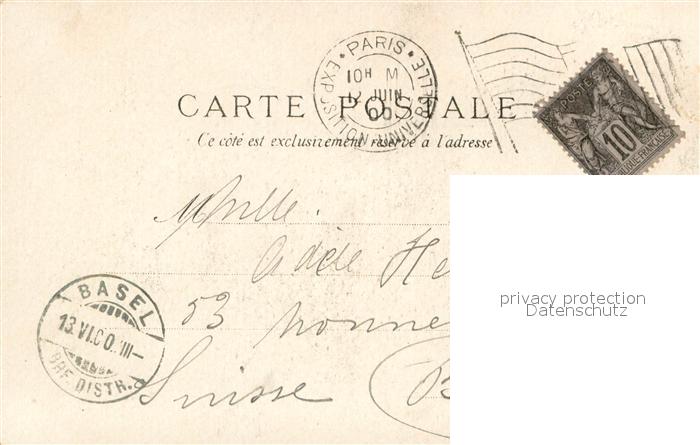 PARIS
EXPOSITION UNIVERSELLE
10H M
12 JUIN
00
CARTE POSTALE
Ce côté est exclusivement réservé à l'adresse
POSTES
10
RÉPUBLIQUE FRANÇAISE
Mlle.
Adèle He
53 Nonne
Suisse
B
BASEL
13.VI.00. III-
BRF. DISTR.
privacy protection
Datenschutz